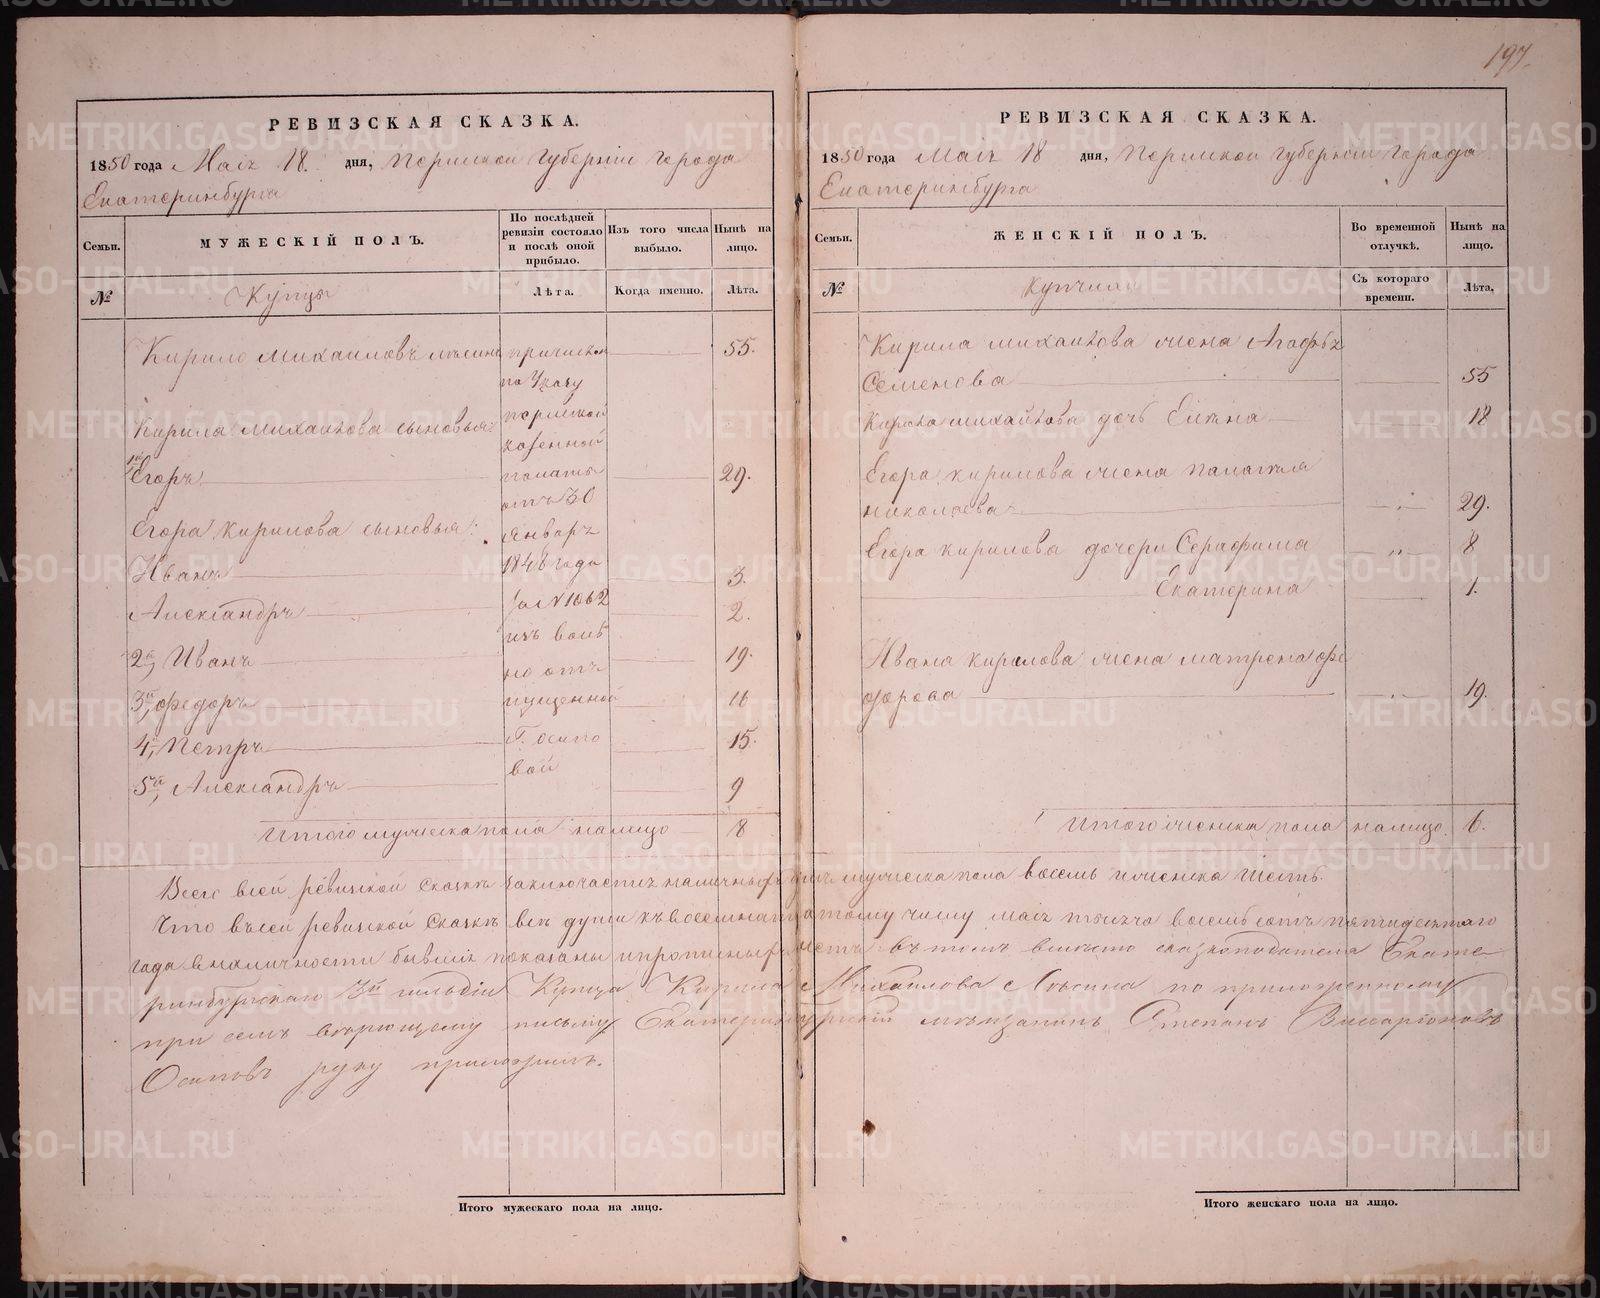 197.
РЕВИЗСКАЯ СКАЗКА.
1850 года Мая 18. дня, Пермской Губерніи города
Екатеринбурга
Семьи. МУЖЕСКІЙ ПОЛЪ. По послѣдней ревизіи состояло и послѣ оной прибыло. Изъ того числа выбыло. Нынѣ на лицо.
№ Купцы Лѣта. Когда именно. Лѣта.
Кирило Михаиловъ причислен 55.
по Указу
Пермской
Кирила Михаилова сыновья
казенной
1й Егоръ палаты 29.
отъ 30
Егора Кирилова сыновья: Января
Иванъ 1848 года 3.
Александръ за № 1062 2.
изъ воль
2й, Иванъ но отъ 19.
3й, Федоръ пущенной 16
4й, Петръ Г. Осипо 15.
вой
5й, Александръ 9
Итого мужеска пола налицо 8
РЕВИЗСКАЯ СКАЗКА.
1850 года Мая 18 дня, Пермской Губерніи города
Екатеринбурга
Семьи. ЖЕНСКІЙ ПОЛЪ. Во временной отлучкѣ. Нынѣ на лицо.
№ Купчихи Съ котораго времени. Лѣта.
Кирила Михаилова жена Агафья
Семенова 55
Кирила Михайлова дочь Елена 18
Егора Кирилова жена Палагея
Николаева 29.
Егора Кирилова дочери Серафима 8
Екатерина 1.
Ивана Кирилова жена Матрена Фе
дорова 19.
Итого женска пола налицо 6.
Всего в сей ревизской сказкѣ заключается наличныхъ душъ мужеска пола восемь и женска шесть.
Что въ сей ревизской сказкѣ всѣ души къ восемнатцатому числу Мая тысяча восемь сотъ пятидесятаго
года в наличности бывшія показаны и прописныхъ нетъ въ томъ вмѣсто сказкоподателя Екате
ринбургскаго 3й гильдіи Купца Кирила Михайлова по приложенному
при семъ вѣрющему письму Екатеринбургскій мѣщанинъ Степанъ
Осиповъ руку приложилъ.
Итого мужескаго пола на лицо.
Итого женскаго пола на лицо.
METRIKI.GASO-URAL.RU